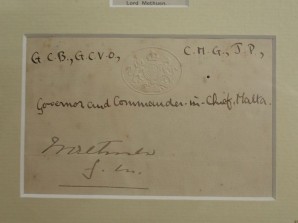 Lord Methuen.
G.C.B., G.C.V.O., C.M.G., J.P.,
Governor and Commander-in-Chief, Malta.
Methuen